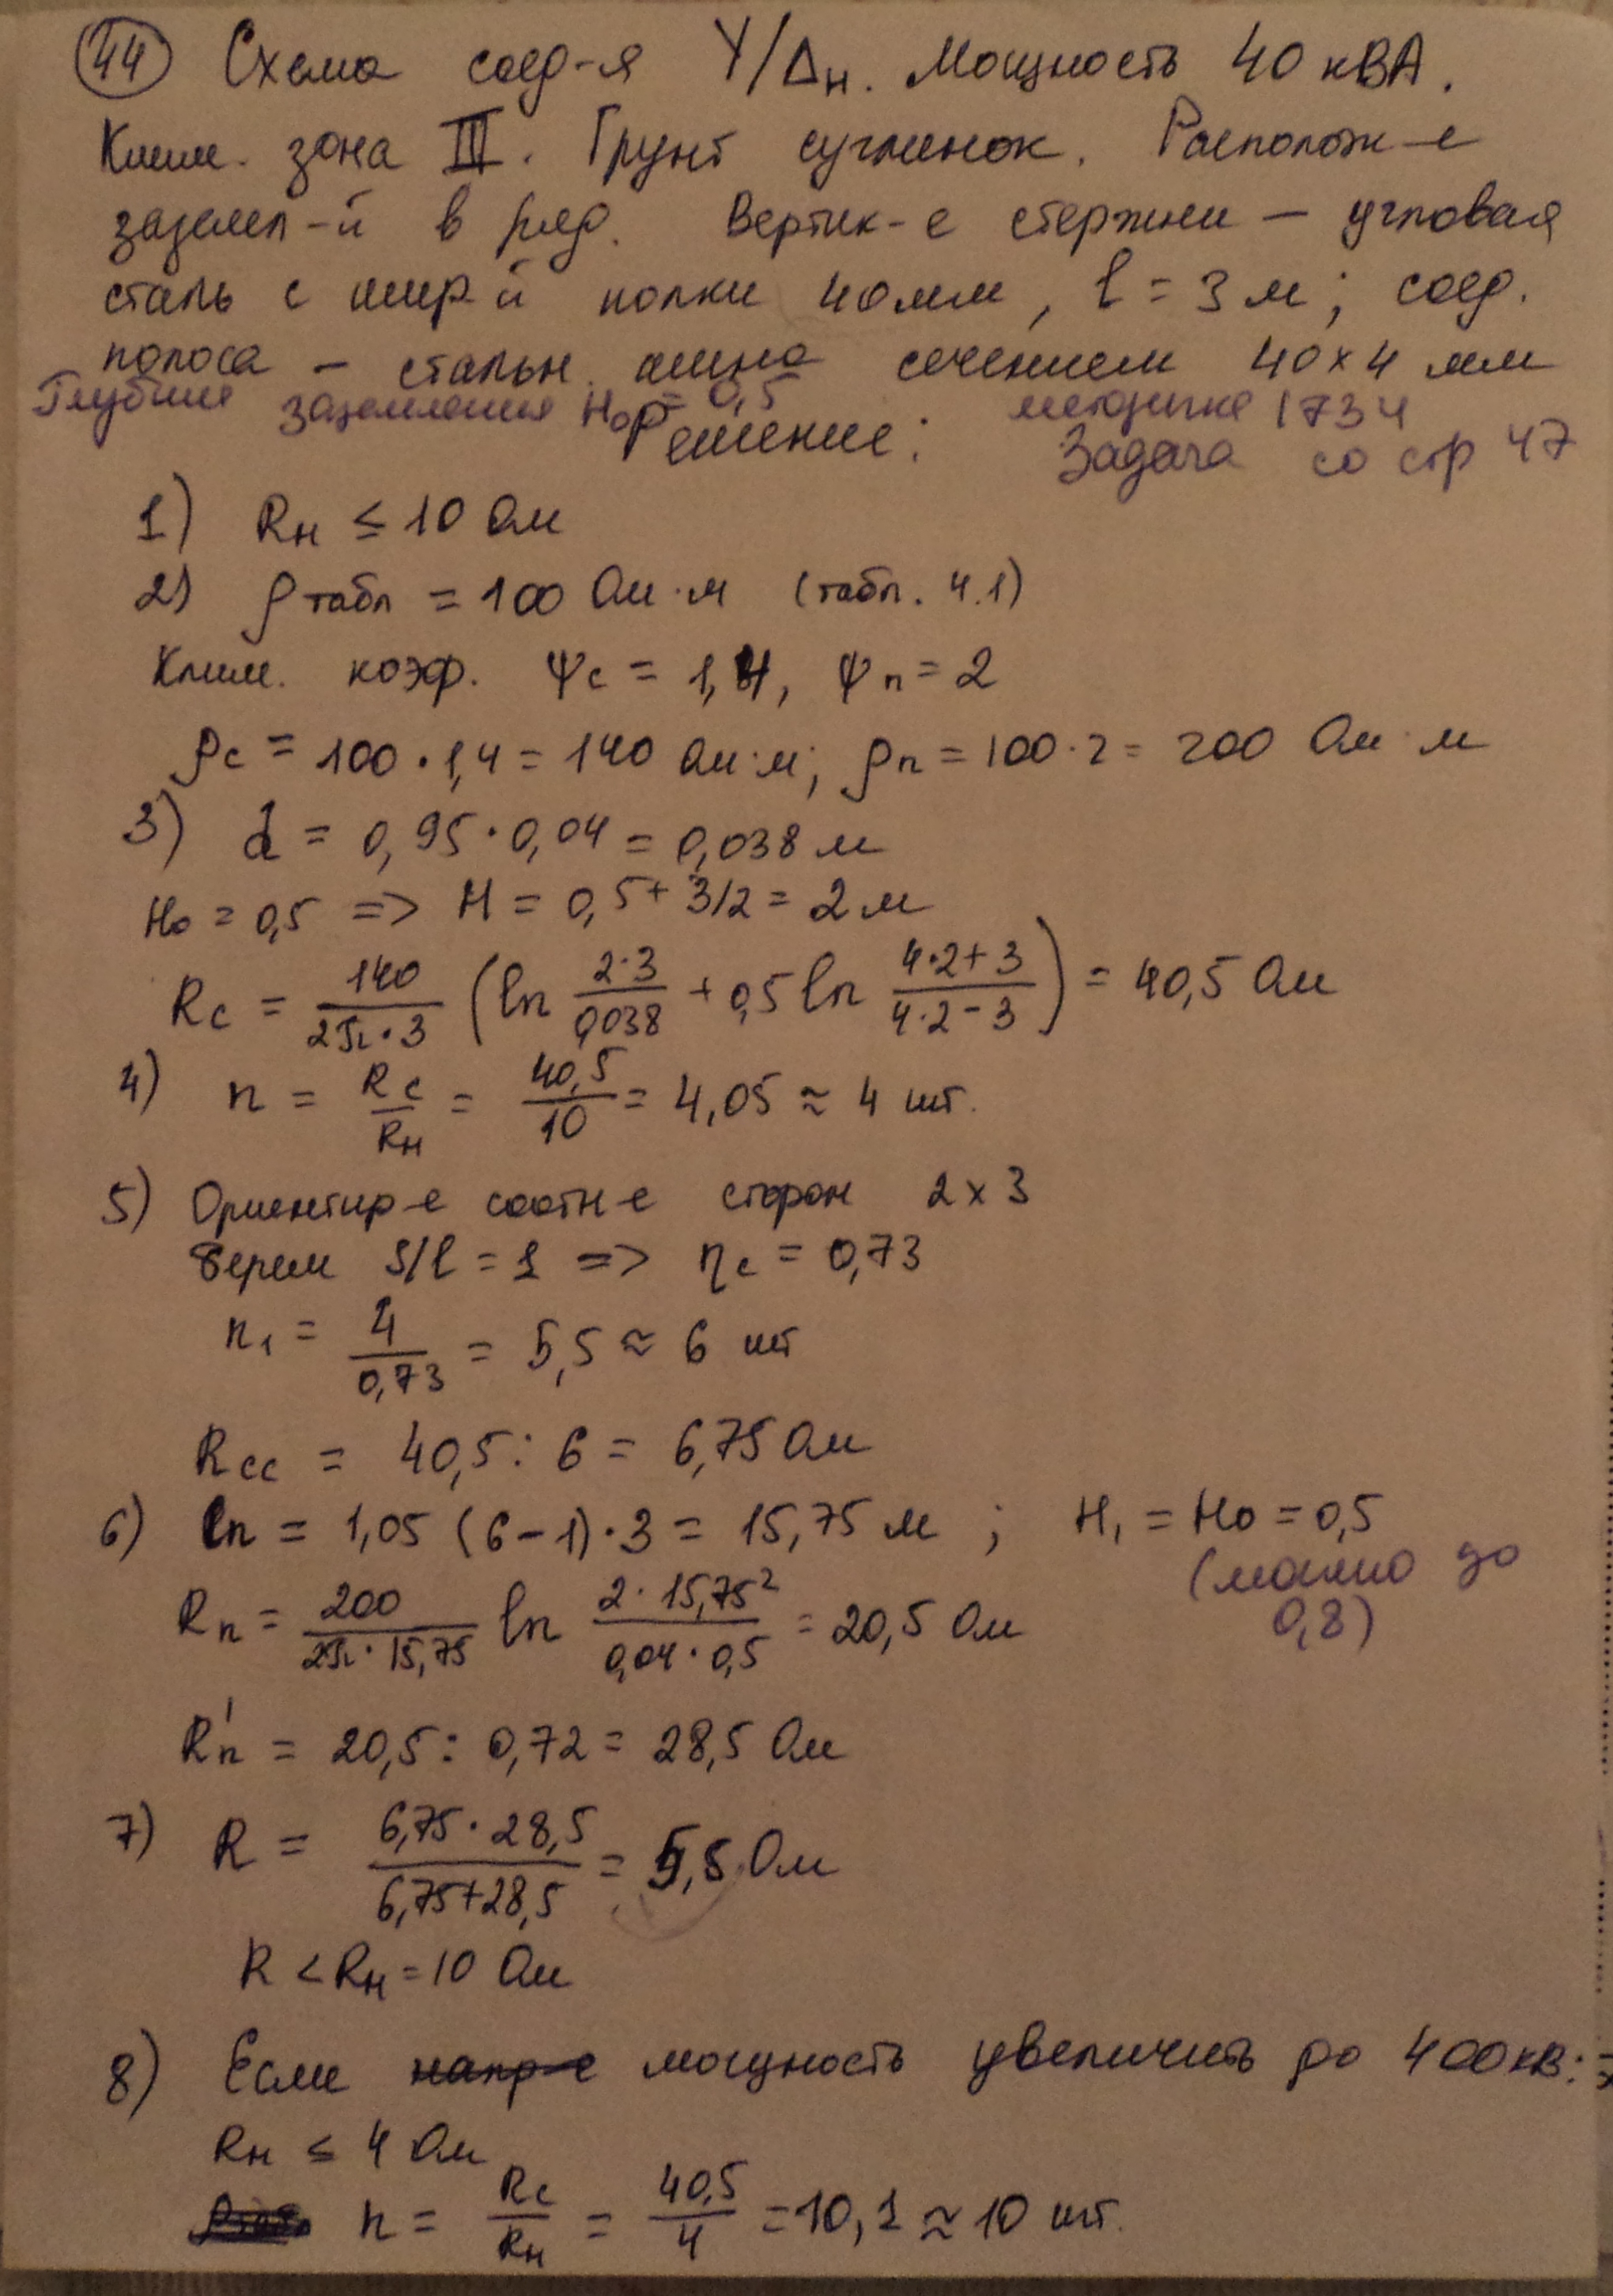 44 Схема соед-я Y/Δн. Мощность 40 кВА.
Клим. зона III. Грунт суглинок. Располож-е
заземл-й в ряд. Вертик-е стержни – угловая
сталь с шир-й полки 40мм, l = 3 м; соед.
полоса – стальн. шина сечением 40×4 мм
Глубина заземления H₀ = 0,5 методичке 1734
Решение: Задача со стр 47
1) Rн ≤ 10 Ом
2) ρтабл = 100 Ом·м (табл. 4.1)
Клим. коэф. Ψс = 1,4, Ψп = 2
ρс = 100·1,4 = 140 Ом·м; ρп = 100·2 = 200 Ом·м
3) d = 0,95·0,04 = 0,038 м
H₀ = 0,5 => H = 0,5 + 3/2 = 2 м
Rс = 140/(2π·3) (ln 2·3/0,038 + 0,5 ln (4·2+3)/(4·2−3)) = 40,5 Ом
4) n = Rс/Rн = 40,5/10 = 4,05 ≈ 4 шт.
5) Ориентир-е соотн-е сторон 2×3
Берем S/l = 1 => ηс = 0,73
n₁ = 4/0,73 = 5,5 ≈ 6 шт
Rсс = 40,5 : 6 = 6,75 Ом
6) lп = 1,05 (6−1)·3 = 15,75 м ; H₁ = H₀ = 0,5
(можно до
0,8)
Rп = 200/(2π·15,75) ln 2·15,75²/(0,04·0,5) = 20,5 Ом
R'п = 20,5 : 0,72 = 28,5 Ом
7) R = 6,75·28,5/(6,75+28,5) = 5,5 Ом
R < Rн = 10 Ом
8) Если напр-е мощность увеличить до 400кВ:
Rн ≤ 4 Ом
n = Rс/Rн = 40,5/4 = 10,1 ≈ 10 шт.